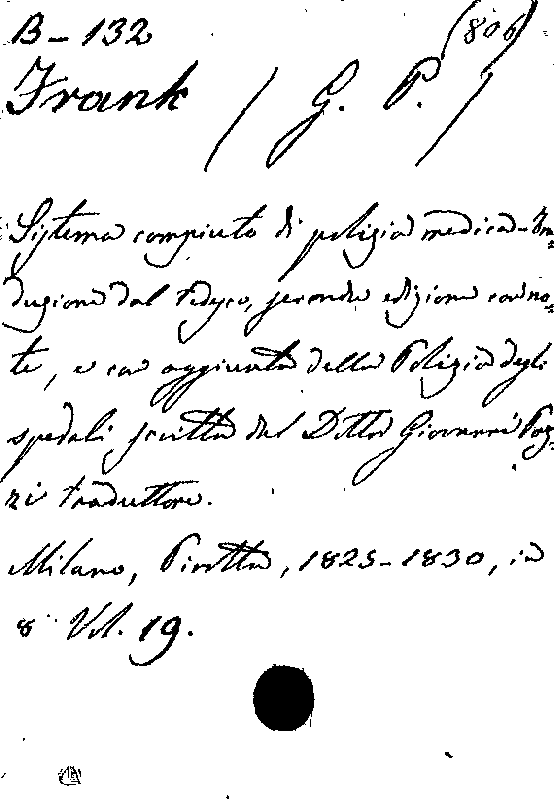 B - 132 (806)
Frank (G. P.)
Sistema compiuto di polizia medica - Tra=
duzione dal tedesco, seconda edizione con no=
te, e con aggiunta della Polizia degli
spedali, scritta dal Dottor Giovanni Poz=
zi traduttore.
Milano, Pirotta, 1825-1830, in
8° Vol. 19.